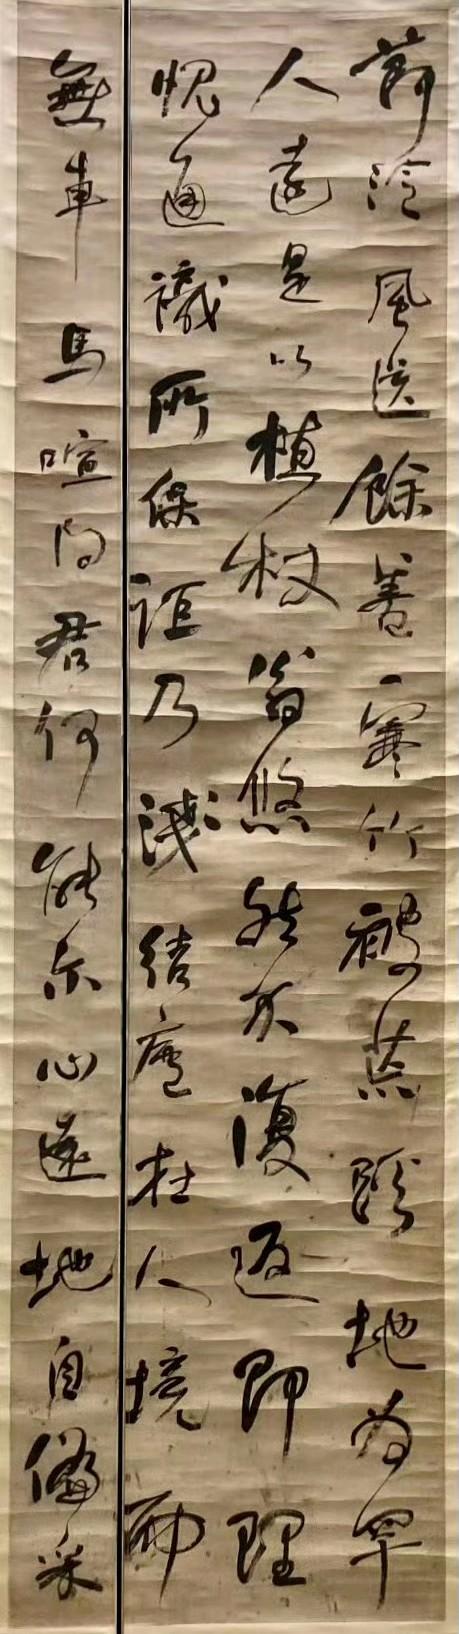 節泠風送餘善寒竹被荒蹊地為罕
人遠是以植杖翁悠然不復返即理
愧通識所保詎乃淺結廬在人境而
無車馬喧問君何能尔心遠地自偏采